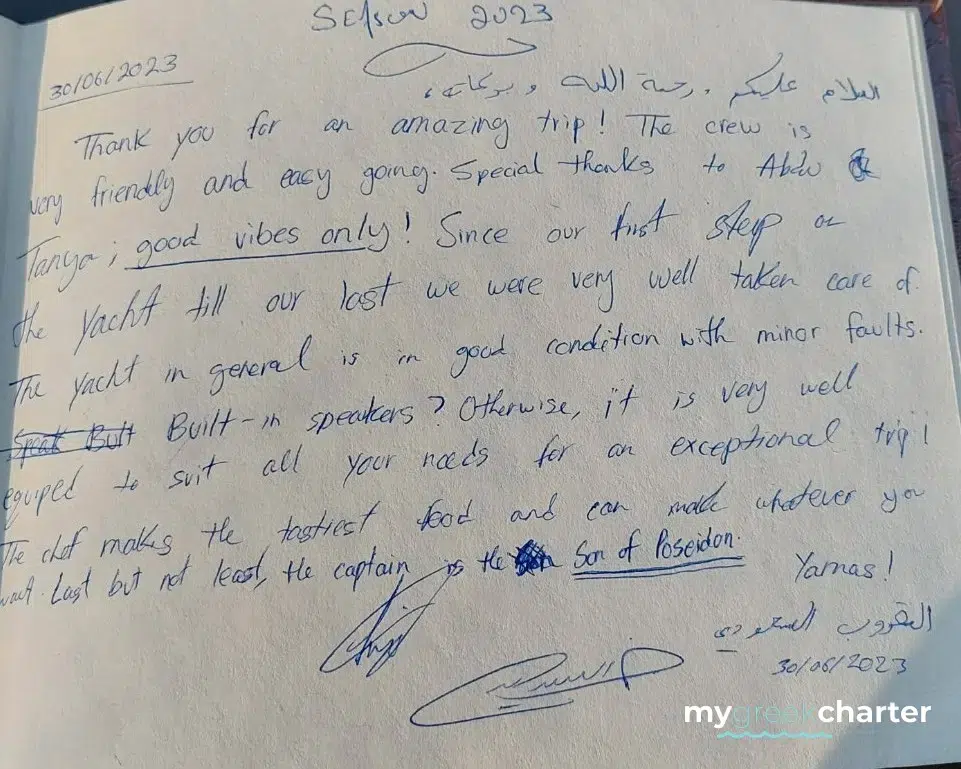 SEASON 2023
30/06/2023
السلام عليكم ورحمة الله وبركاته،
Thank you for an amazing trip! The crew is
very friendly and easy going. Special thanks to Abdu &
Tanya; good vibes only! Since our first step on
the yacht till our last we were very well taken care of.
The yacht in general is in good condition with minor faults.
Built-in speakers? Otherwise, it is very well
equiped to suit all your needs for an exceptional trip!
The chef makes the tastiest food and can make whatever you
want. Last but not least, the captain is the Son of Poseidon.
Yamas!
السعودي
30/06/2023
mygreekcharter